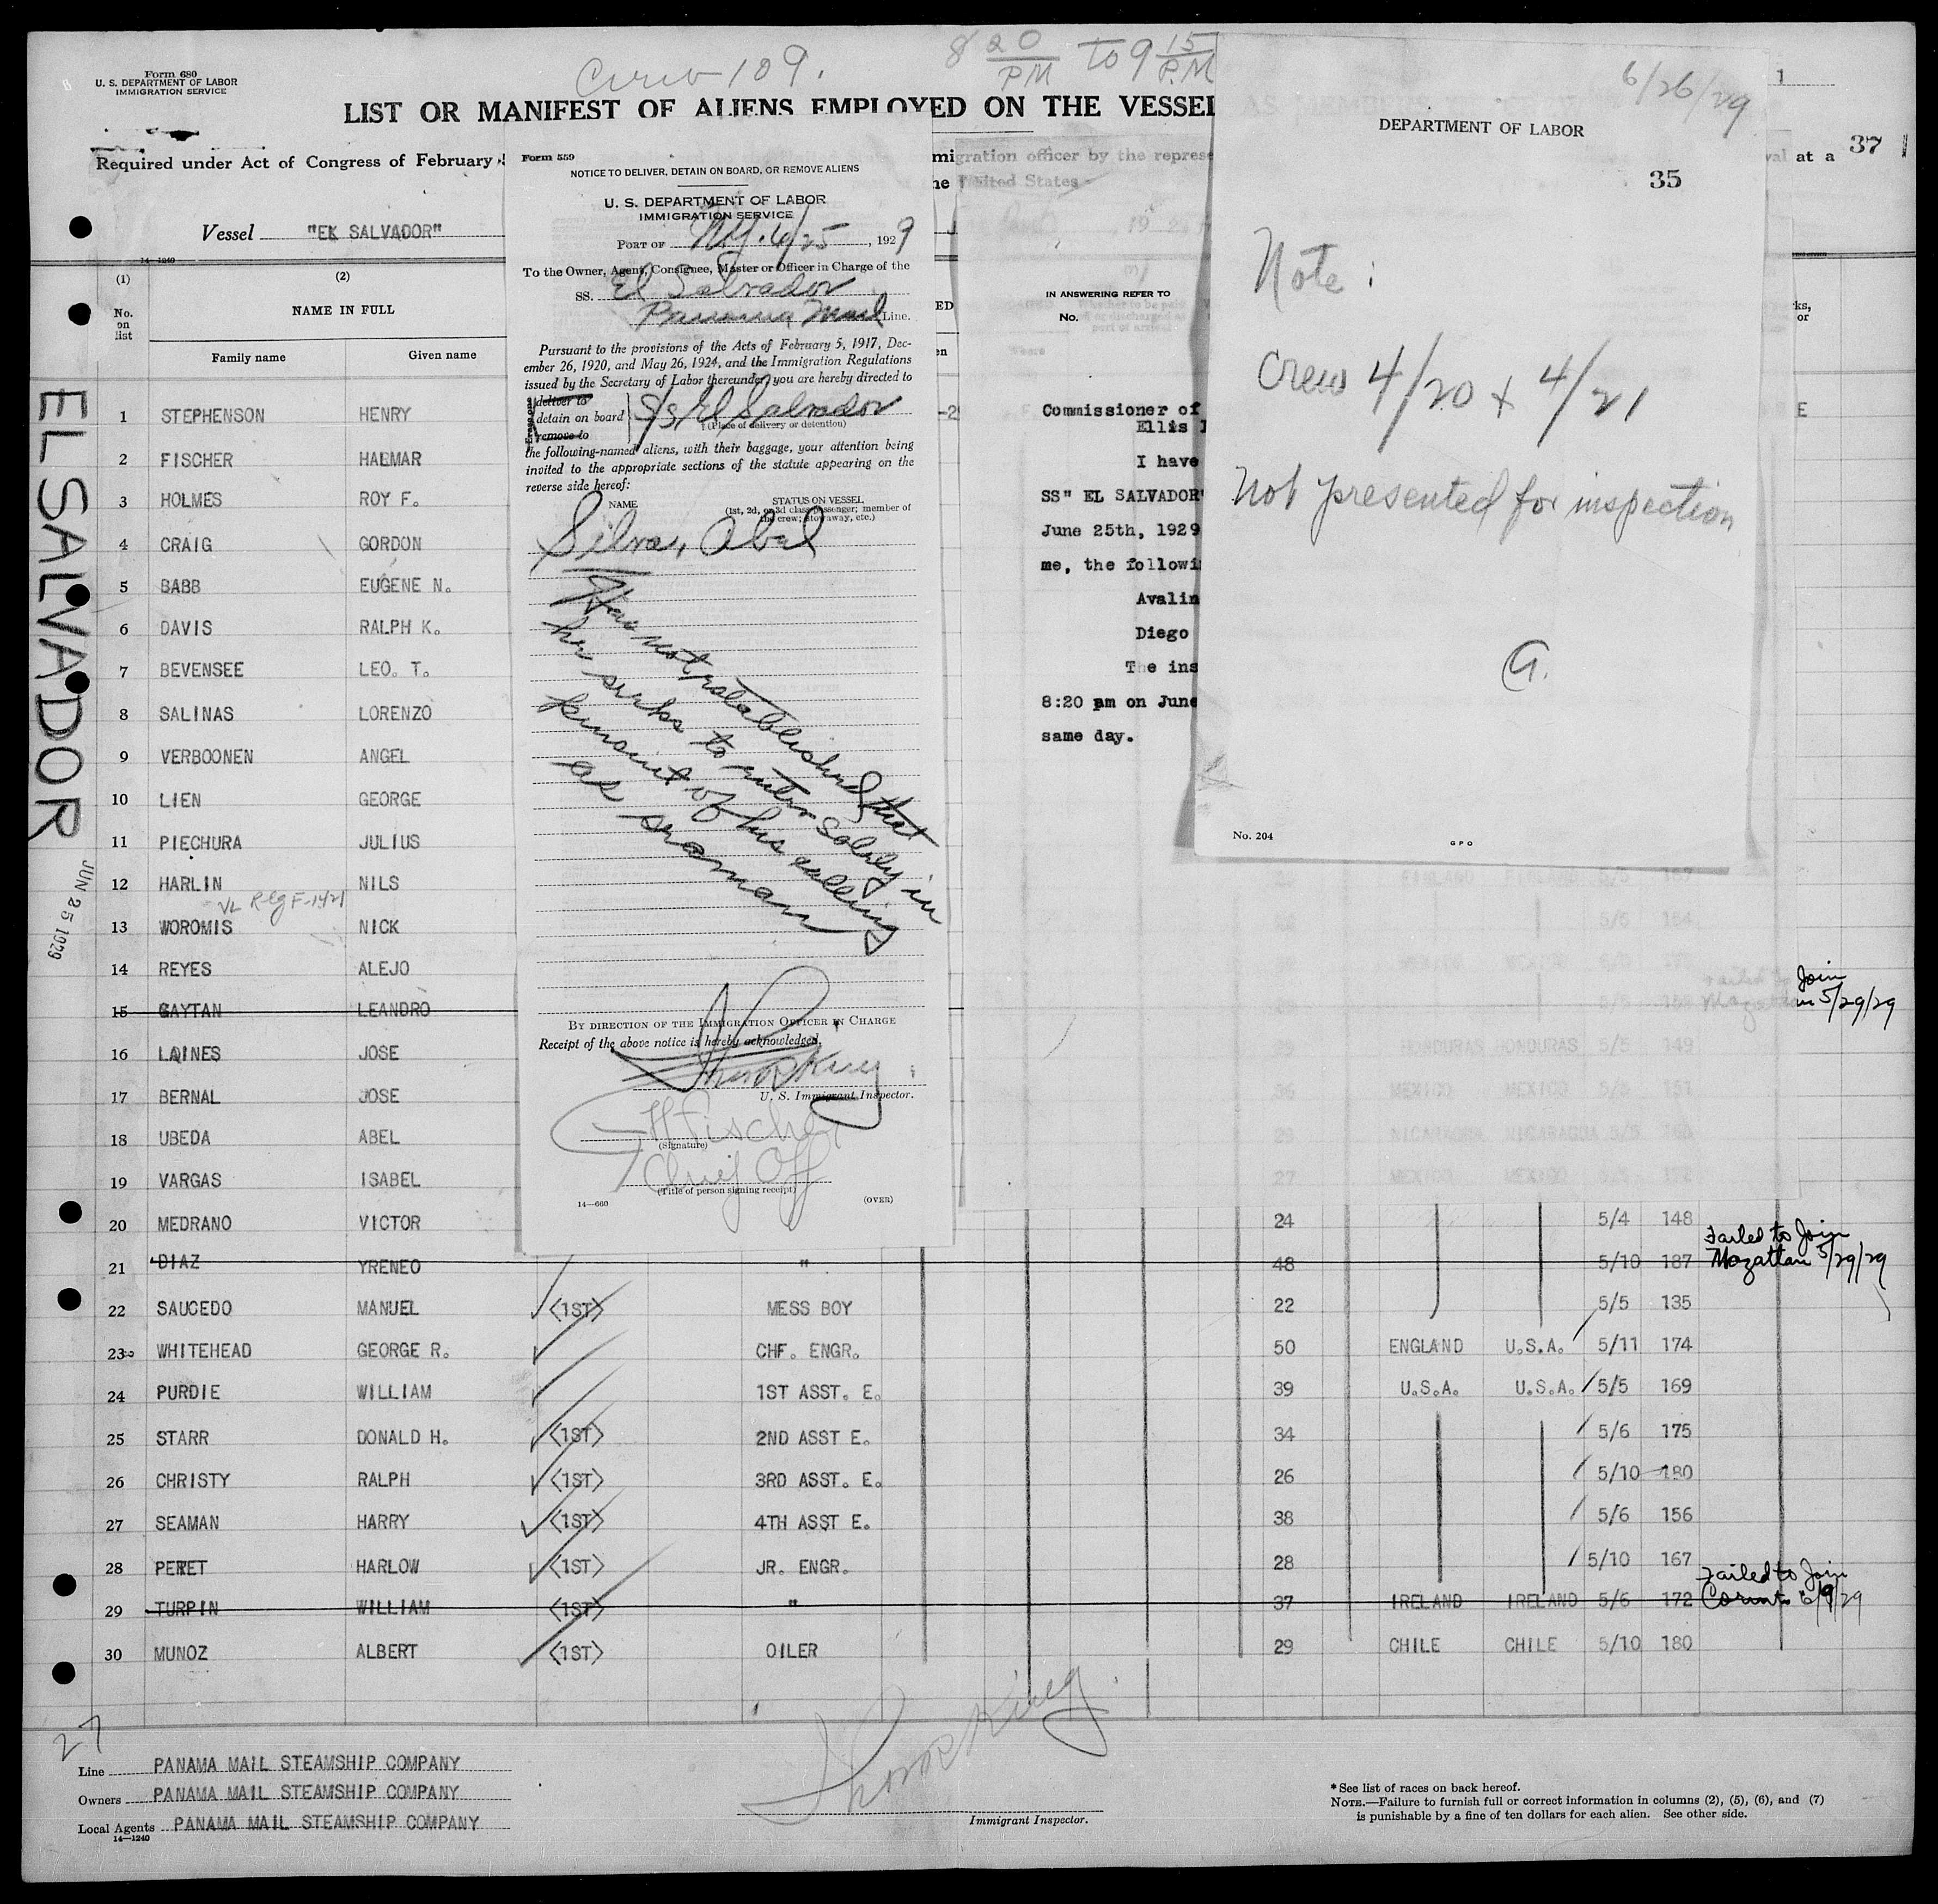 Form 680
U. S. DEPARTMENT OF LABOR
IMMIGRATION SERVICE
109.
8 20 PM to 9 15 P.M
LIST OR MANIFEST OF ALIENS EMPLOYED ON THE VESSEL
Required under Act of Congress of February
Vessel "EL SALVADOR"
14—1240
(1) (2)
No. on list
NAME IN FULL
Family name Given name
EL SALVADOR
JUN 25 1929
1 STEPHENSON HENRY
2 FISCHER HALMAR
3 HOLMES ROY F.
4 CRAIG GORDON
5 BABB EUGENE N.
6 DAVIS RALPH K.
7 BEVENSEE LEO. T.
8 SALINAS LORENZO
9 VERBOONEN ANGEL
10 LIEN GEORGE
11 PIECHURA JULIUS
12 HARLIN NILS
13 WOROMIS NICK
14 REYES ALEJO
15 GAYTAN LEANDRO
16 LAINES JOSE
17 BERNAL JOSE
18 UBEDA ABEL
19 VARGAS ISABEL
20 MEDRANO VICTOR 24 5/4 148
21 DIAZ YRENEO " 48 5/10 187 Failed to Join Mazatlan 5/29/29
22 SAUCEDO MANUEL (1ST) MESS BOY 22 5/5 135
23 WHITEHEAD GEORGE R. CHF. ENGR. 50 ENGLAND U.S.A. 5/11 174
24 PURDIE WILLIAM 1ST ASST. E. 39 U.S.A. U.S.A. 5/5 169
25 STARR DONALD H. (1ST) 2ND ASST E. 34 5/6 175
26 CHRISTY RALPH (1ST) 3RD ASST. E. 26 5/10 180
27 SEAMAN HARRY (1ST) 4TH ASST E. 38 5/6 156
28 PERET HARLOW (1ST) JR. ENGR. 28 5/10 167
29 TURPIN WILLIAM (1ST) " 37 IRELAND IRELAND 5/6 172 Failed to Join Corinto 6/9/29
30 MUNOZ ALBERT (1ST) OILER 29 CHILE CHILE 5/10 180
27
Line PANAMA MAIL STEAMSHIP COMPANY
Owners PANAMA MAIL STEAMSHIP COMPANY
Local Agents PANAMA MAIL STEAMSHIP COMPANY
14—1240
Immigrant Inspector.
*See list of races on back hereof.
NOTE.—Failure to furnish full or correct information in columns (2), (5), (6), and (7)
is punishable by a fine of ten dollars for each alien. See other side.
Form 559
NOTICE TO DELIVER, DETAIN ON BOARD, OR REMOVE ALIENS
U. S. DEPARTMENT OF LABOR
IMMIGRATION SERVICE
PORT OF N.Y. 6/25, 1929
To the Owner, Agent, Consignee, Master or Officer in Charge of the
SS. El Salvador
Panama Mail Line.
Pursuant to the provisions of the Acts of February 5, 1917, Dec-
ember 26, 1920, and May 26, 1924, and the Immigration Regulations
issued by the Secretary of Labor thereunder, you are hereby directed to
deliver to
detain on board S/S El Salvador
remove to
(Place of delivery or detention)
the following-named aliens, with their baggage, your attention being
invited to the appropriate sections of the statute appearing on the
reverse side hereof:
NAME STATUS ON VESSEL
(1st, 2d, or 3d class passenger; member of
the crew; stowaway, etc.)
Silva, Abel
Has not established that
he seeks to enter solely in
pursuit of his calling
as seaman
BY DIRECTION OF THE IMMIGRATION OFFICER IN CHARGE
Receipt of the above notice is hereby acknowledged.
U. S. Immigrant Inspector.
H Fischer
(Signature)
Chief Off
(Title of person signing receipt)
14—660
(OVER)
IN ANSWERING REFER TO
No.
Commissioner of
Ellis I
I have
SS" EL SALVADOR"
June 25th, 1929
me, the followi
Avalin
Diego
The ins
8:20 pm on June
same day.
6/26/29
DEPARTMENT OF LABOR
35
Note:
Crew 4/20 + 4/21
Not presented for inspection
G.
No. 204
GPO
1
val at a
37
ks,
or
E
Join
5/29/29